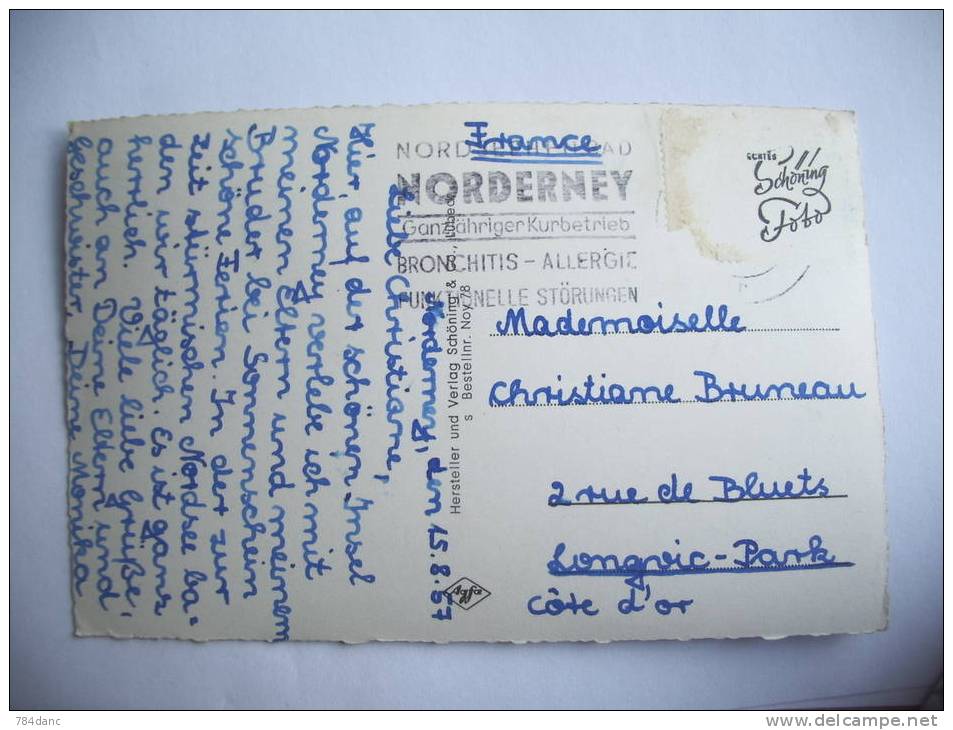 Norderney, den 15.8.67
Liebe Christiane,
Hier, auf der schönen Insel
Norderney verlebe ich mit
meinen Eltern und meinem
Bruder bei Sonnenschein
schöne Ferien. In der zur
Zeit stürmischen Nordsee ba=
den wir täglich. Es ist ganz
herrlich. Viele liebe Grüße,
auch an Deine Eltern und
Geschwister, Deine Monika
Hersteller und Verlag Schöning & Lübeck
s Bestellnr. Noy 78
Agfa
France
NORD BAD
NORDERNEY
Ganzjähriger Kurbetrieb
BRONCHITIS - ALLERGIE
FUNKTIONELLE STÖRUNGEN
Schöning
Foto
Mademoiselle
Christiane Bruneau
2 rue de Bluets
Longvic-Park
Côte d'or
784danc
www.delcampe.net